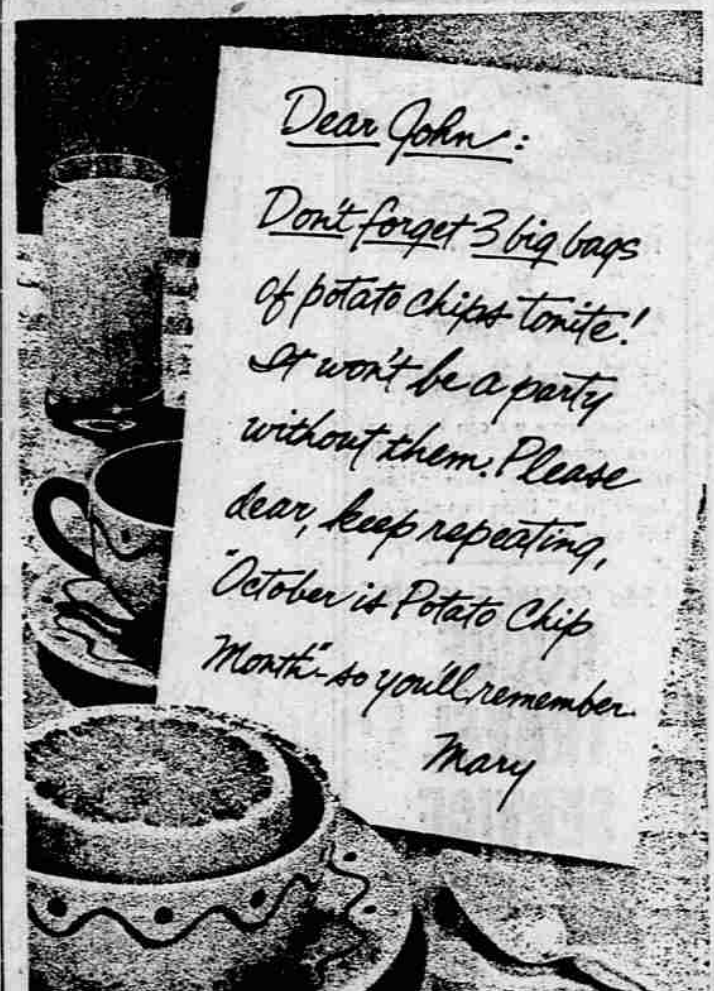 Dear John:
Don't forget 3 big bags
of potato chips tonite!
It won't be a party
without them. Please
dear, keep repeating,
"October is Potato Chip
Month"- so you'll remember.
Mary